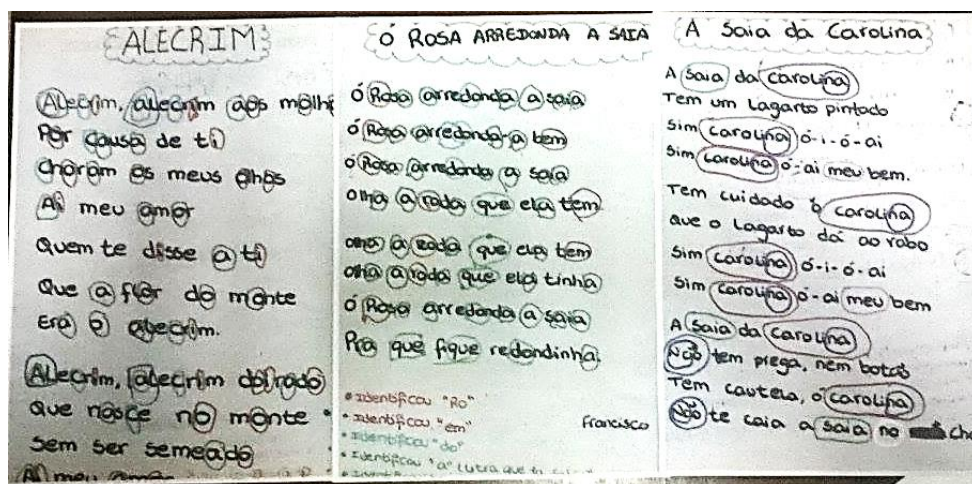 ALECRIM
Alecrim, alecrim aos molh
Por causa de ti
Choram os meus olhos
Ai meu amor
Quem te disse a ti
Que a flor do monte
Era o alecrim.
Alecrim, alecrim doirado
Que nasce no monte
Sem ser semeado
Ai meu amor
Ó ROSA ARREDONDA A SAIA
Ó Rosa arredonda a saia
Ó Rosa arredonda-a bem
Ó Rosa arredonda a saia
Olha a roda que ela tem
Olha a roda que ela tem
Olha a roda que ela tinha
Ó Rosa arredonda a saia
Pra que fique redondinha.
• Identificou "Ro"
• Identificou "em"
Francisco
• Identificou "do"
• Identificou "a" (letra que
A Saia da Carolina
A Saia da Carolina
Tem um Lagarto pintado
Sim Carolina ó-i-ó-ai
Sim Carolina ó-ai meu bem.
Tem cuidado ó Carolina
Que o Lagarto dá ao rabo
Sim Carolina ó-i-ó-ai
Sim Carolina ó-ai meu bem
A Saia da Carolina
Não tem prega, nem botão
Tem cautela, ó Carolina
Não te caia a saia no ch